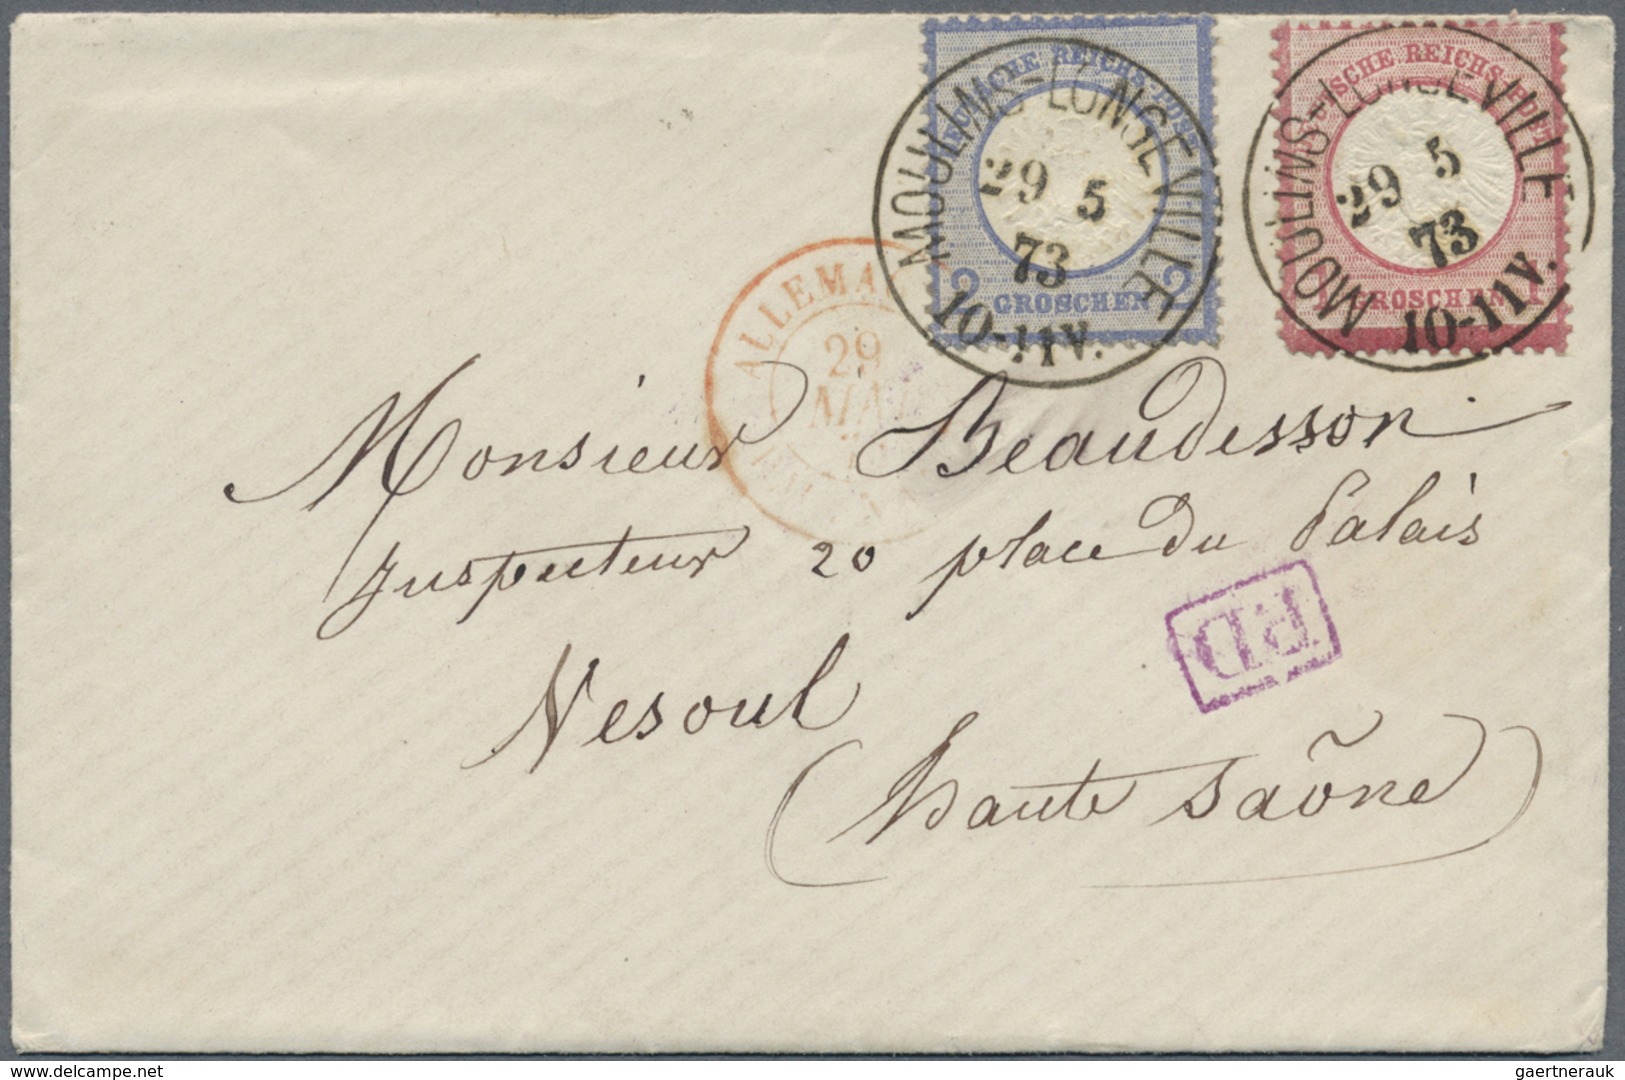 DEUTSCHE REICHS-POST
2 GROSCHEN 2
MOULINS-LONGEVILLE
29 5
73
10-11V.
DEUTSCHE REICHS-POST
1 GROSCHEN 1
MOULINS-LONGEVILLE
29 5
73
10-11V.
29
MAI
Monsieur Beaudesson
Inspecteur 20 place du Palais
PD
Vesoul
(haute Saône)
delcampe.net
gaertnerauk